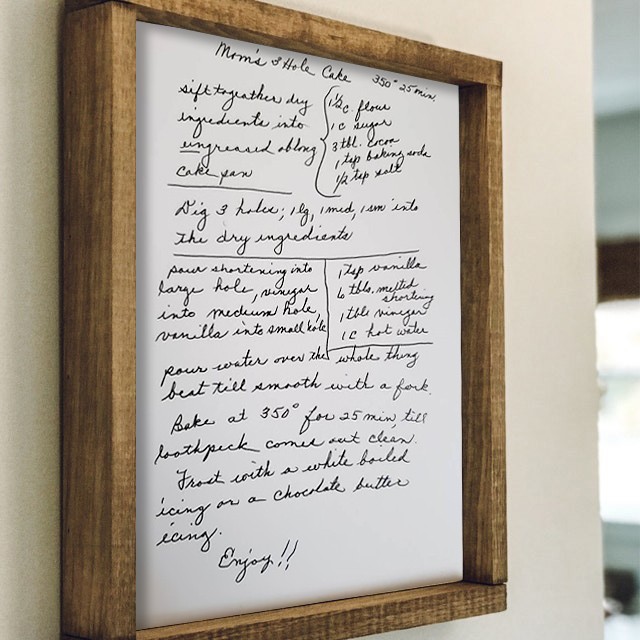 Mom's 3 Hole Cake 350° 25 min.
sift togeather dry
ingredients into
ungreased oblong
cake pan
1½ c. flour
1 c sugar
3 tbl. cocoa
1 tsp baking soda
1/2 tsp salt
Dig 3 holes; 1 lg, 1 med, 1 sm into
the dry ingredients
pour shortening into
large hole, vinegar
into medium hole,
vanilla into small hole
1 tsp vanilla
6 tbls. melted
shortening
1 tbls vinegar
1 c hot water
pour water over the whole thing
beat till smooth with a fork.
Bake at 350° for 25 min, till
toothpick comes out clean.
Frost with a white boiled
icing or a chocolate butter
icing.
Enjoy!!